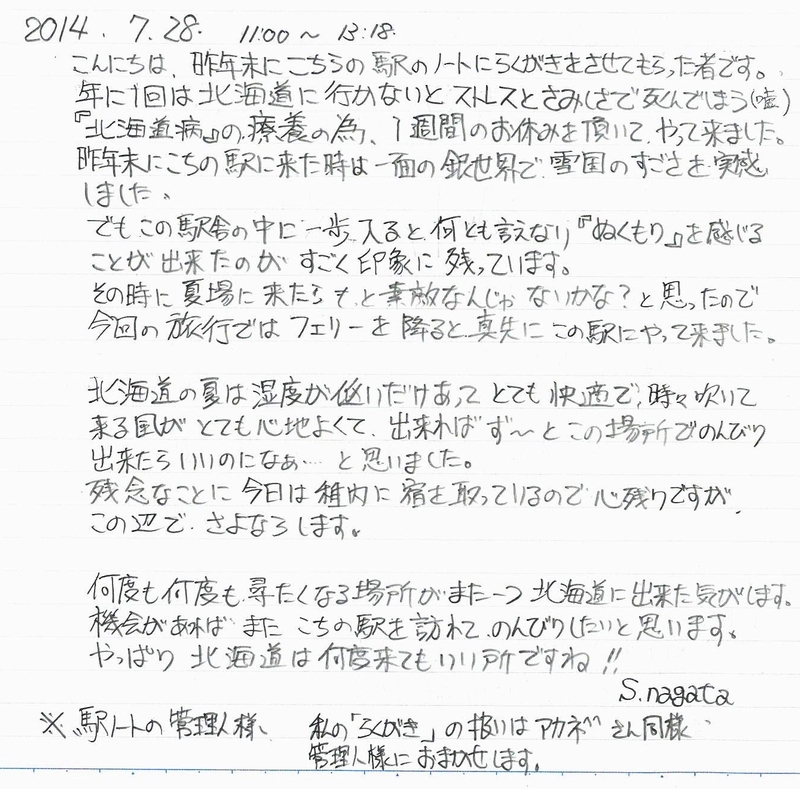 2014. 7.28. 11:00 ~ 13:18.
こんにちは、昨年末にこちらの駅のノートにらくがきをさせてもらった者です。
年に1回は北海道に行かないとストレスとさみしさで死んでしまう(嘘)
『北海道病』の療養の為、1週間のお休みを頂いて、やって来ました。
昨年末にこちの駅に来た時は一面の銀世界で、雪国のすごさを実感
しました。
でもこの駅舎の中に一歩入ると何とも言えない『ぬくもり』を感じる
ことが出来たのがすごく印象に残っています。
その時に夏場に来たらもっと素敵なんじゃないかな?と思ったので
今回の旅行ではフェリーを降ると真先にこの駅にやって来ました。
北海道の夏は湿度が低いだけあってとても快適で、時々吹いて
来る風がとても心地よくて、出来ればず〜とこの場所でのんびり
出来たらいいのになぁ…と思いました。
残念なことに今日は稚内に宿を取っているので心残りですが、
この辺で、さよなろします。
何度も何度も尋たくなる場所がまた一つ北海道に出来た気がします。
機会があればまたこちの駅を訪れて、のんびりしたいと思います。
やっぱり北海道は何度来てもいい所ですね!!
S.nagata
※駅ノートの管理人様、私の「らくがき」の扱いはアカネさん同様、
管理人様におまかせします。